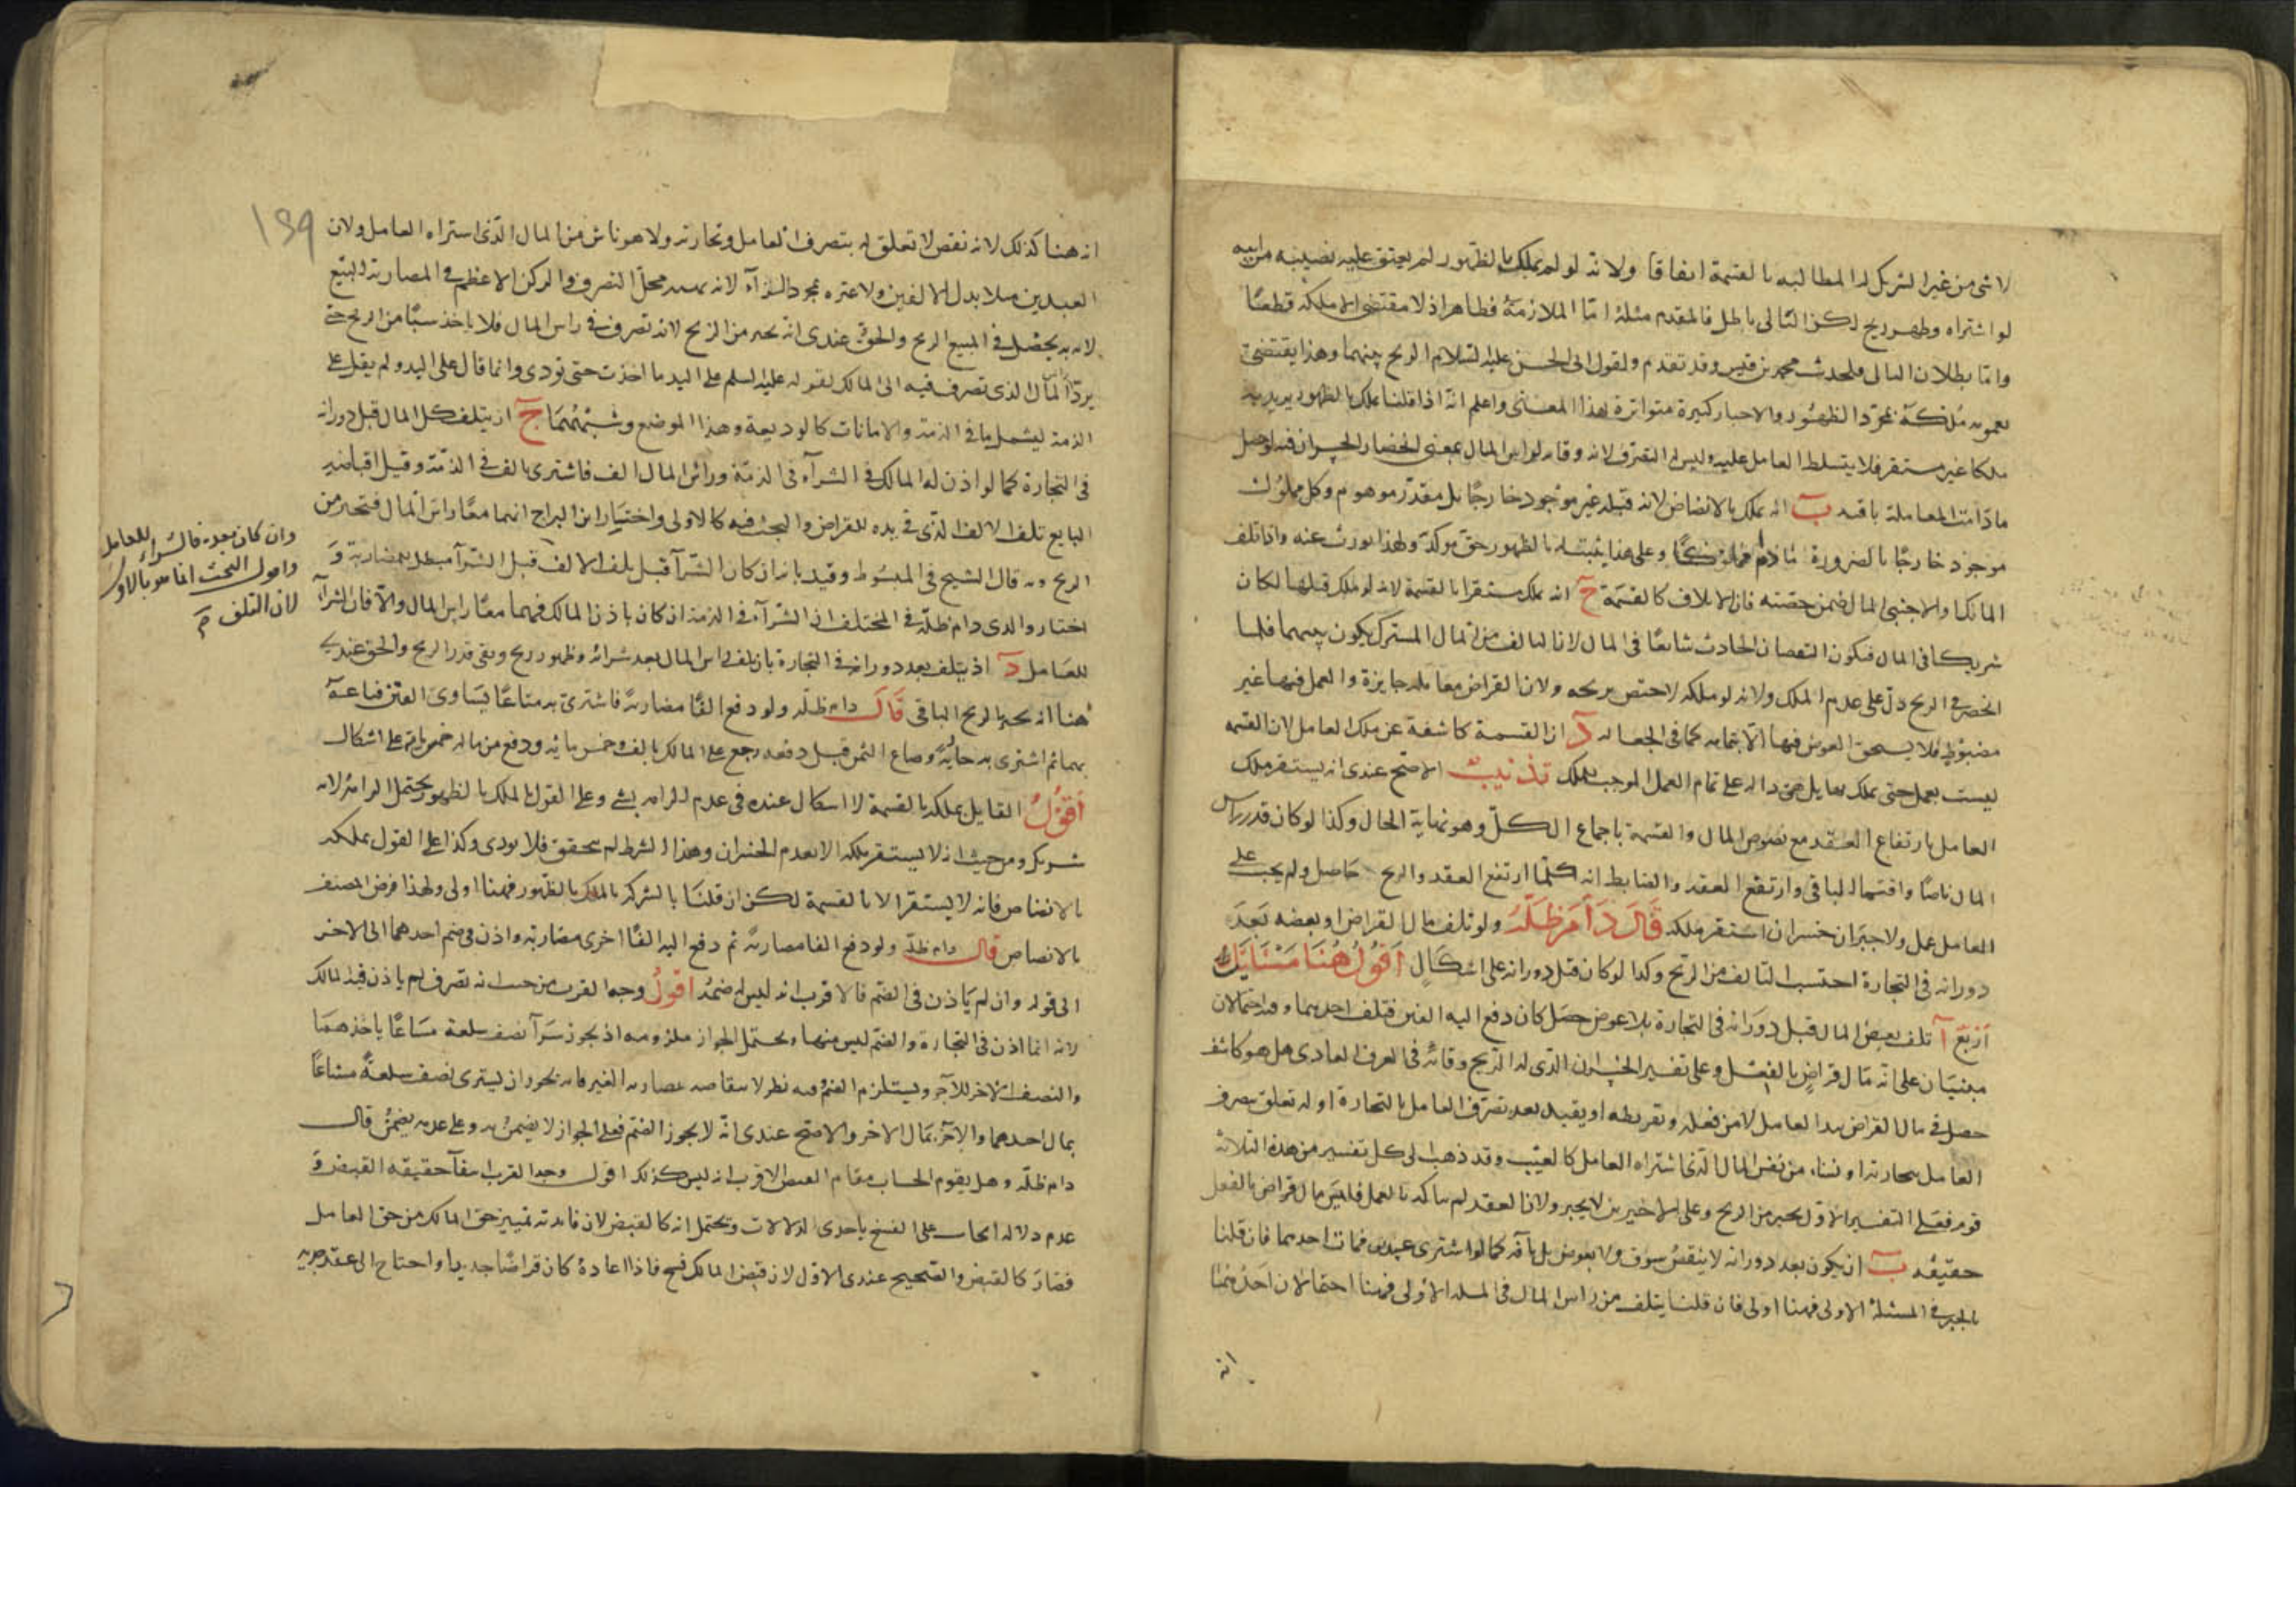 لا شى من غير الشريك له المطالبه بالقسمة اتفاقا ولانه لو لم يملك بالظهور لم يعتق عليه نصيبه من ابيه
لو اشتراه وظهر ربح لكن التالى باطل فالمقدم مثله امّا الملازمة فظاهر اذ لا مقتضى الا ملكه قطعًا
وامّا بطلان التالى فلحديث محمد بن قيس وقد تقدم ولقول ابى الحسن عليه السلام الربح بينهما وهذا يقتضى
بعمومه ملكه بمجرّد الظهور والاخبار كثيرة متواترة بهذا المعنى واعلم انّه اذا قلنا يملك بالظهور يريد به
ملكا غير مستقر فلا يتسلط العامل عليه وليس له التصرف لانه وقاية لراس المال بمعنى انحصار الجبران فيه لو حصل
ما دامت المعاملة باقية ب انه يملك بالانضاض لانه قبله غير موجود خارجًا بل مقدّر موهوم وكل مملوك
موجود خارجًا بالضرورة وعلى هذا يثبت له بالظهور حق موكد ولهذا يورث عنه واذا اتلف
المالك او الاجنبى المال ضمن حصته فان الاتلاف كالقسمة ج انه يملك مستقرا بالقسمة لانه لو ملك قبلها لكان
شريكا فى المال فيكون النقصان الحادث شايعًا فى المال لان التالف من المال المشترك يكون بينهما فلما
انحصر فى الربح دلّ على عدم الملك ولانه لو ملكه لاختص بربحه ولان القراض معامله جايزة والعمل فيها غير
مضبوط فلا يستحق العوض فيها الا بتمامه كما فى الجعاله د ان القسمة كاشفة عن ملك العامل لان القسمه
ليست بعمل حتى يملك بها بل هى داله على تمام العمل الموجب للملك تذنيب الاصح عندى انه يستقر ملك
العامل بارتفاع العقد مع نضوض المال والقسمة باجماع الكلّ وهو نهاية الحال وكذا لو كان قدر راس
المال ناضا واقتسما الباقى وارتفع العقد والضابط انه كلما ارتفع العقد والربح حاصل ولم يجب على
العامل عمل ولا جبران خسران استقر ملكه قال دام ظله ولو تلف مال القراض او بعضه بعد
دورانه فى التجارة احتسب التالف من الربح وكذا لو كان قبل دورانه على اشكال اقول هنا مسايل
اربع آ تلف بعض المال قبل دورانه فى التجارة بلا عوض حصل كان دفع اليه الفين فتلف احديهما وفيه احتمالان
مبنيان على انّه مال قراض بالفعل وعلى تفسير الخسران الذى له الربح وقاية فى العرف العادى هل هو كل نقص
حصل فى مال القراض بيد العامل لا من فعله وتفريطه او يقيد بعد تصرف العامل بالتجارة او له تعلق بتصرف
العامل بتجارته او ينشا من نفس المال الذى اشتراه العامل كالعيب وقد ذهب الى كل تفسير من هذه الثلاثه
قوم فعلى التفسير الاوّل يجبر من الربح وعلى الاخيرين لا يجبر ولان العقد لم يتاكد بالعمل فليس مال قراض بالفعل
حقيقه ب ان يكون بعد دورانه لا بنقص سوق ولا بعوض بل بآفة كما لو اشترى عبدين فمات احدهما فان قلنا
بالجبر فى المسئلة الاولى فهنا اولى فان قلنا يتلف من راس المال فى المسله الاولى فهنا احتمالان احدهما
انه
١٣٩
انه هنا كذلك لانه نقص لا تعلق له بتصرف العامل وتجارته ولا هو ناش من المال الذى اشتراه العامل ولان
العبدين بدل الالفين ولا عبرة بمجرد الشراء لانه محلّ التصرف والركن الاعظم فى المضاربة البيع
لانه به يحصل فى المبيع الربح والحق عندى انه يجبر من الربح لانه تصرف فى راس المال فلا ياخذ شيئًا من الربح حتى
يردّ المال الذى تصرف فيه الى المالك لقوله عليه السلم على اليد ما اخذت حتى تودى وانما قال على اليد ولم يقل على
الذمة ليشمل ما فى الذمة والامانات كالوديعة وهذا الموضع وشبههما ج ان يتلف كل المال قبل دورانه
فى التجارة كما لو اذن له المالك فى الشراء فى الذمة وراس المال الف فاشترى بالف فى الذمّة وقبل اقباضه
البايع تلف الالف الذى فى يده للقراض والبحث فيه كالاولى واختيار ابن البراج انهما معًا راس المال فتجبر من
الربح وبه قال الشيخ فى المبسوط وقيد بان كان الشرآ قبل تلف الالف قبل الشرآ مبطل للمضاربة و
اختار والدى دام ظلّه فى المختلف ان الشرآء فى الذمة ان كان باذن المالك فهما معًا راس المال والّا فان الشراء
للعامل د ان يتلف بعد دورانه فى التجارة بان تلف راس المال بعد شرائه وظهور ربح وبقى قدر الربح والحق عندى
هنا انه يجبر الربح الباقى قال دام ظلّه ولو دفع الفًا مضاربة فاشترى به متاعًا يساوى الفين فباعه
بهما ثم اشترى به جارية وضاع الثمن قبل دفعه رجع على المالك بالف وخمس مائه ودفع من ماله خمس مائه على اشكال
اقول القايل بملكه بالقسمة لا اشكال عنده فى عدم الزامه بشئ وعلى القول بالملك بالظهور يحتمل الزامه لانه
شريك ومن حيث انه لا يستقر ملكه الا بعدم الخسران وهذا الشرط لم يتحقق فلا يودى وكذا على القول بملكه
بالانضاض فانه لا يستقر الا بالقسمة لكن ان قلنا بالشركة بالملك بالظهور فهنا اولى ولهذا فرض المصنف
بالانضاض قال دام ظله ولو دفع الفا مضاربة ثم دفع اليه الفًا اخرى مضاربة واذن فى ضم احدهما الى الاخر
الى قوله وان لم ياذن فى الضم فالاقرب انه ليس له ضمه اقول وجه القرب من حيث انه تصرف لم ياذن فيه المالك
لانه انما اذن فى التجارة والضم ليس منها ويحتمل الجواز ملزومه اذ يجوز شرآ نصف سلعة مشاعًا باحدهما
والنصف الاخر للآخر ويستلزم الضم وفيه نظر لانتقاضه بمضاربة الغير فانه يجوز ان يشترى نصف سلعة مشاعًا
بمال احدهما والآخر بمال الاخر والاصح عندى انّه لا يجوز الضم فعلى الجواز لا يضمن به وعلى عدمه يضمن قال
دام ظلّه وهل يقوم الحساب مقام القبض الاقرب انه ليس كذلك اقول وجه القرب انتفآ حقيقه القبض و
عدم دلالة الحساب على الفسخ باحدى الدلالات ويحتمل انه كالقبض لان فايدته تمييز حق المالك من حق العامل
فصار كالقبض والصحيح عندى الاوّل لان قبض المالك فسخ فاذا اعاده كان قراضًا جديدا واحتاج الى عقد جديد
وان كان بعده فالشراء للعامل
وامول البحث انما هو بالاول
لان التلف